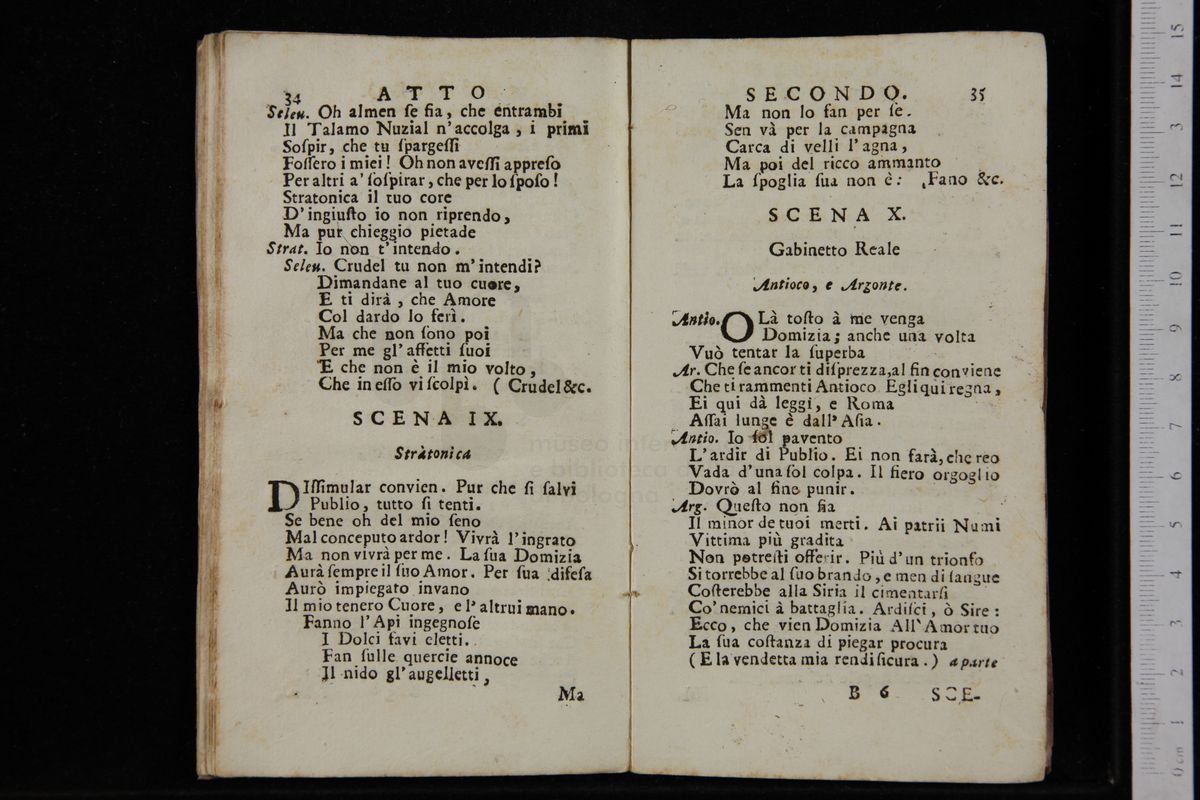 34 ATTO
Seleu. Oh almen ſe ſia, che entrambi
Il Talamo Nuzial n'accolga, i primi
Soſpir, che tu ſpargeſſi
Foſſero i miei! Oh non aveſſi appreſo
Per altri a' ſoſpirar, che per lo ſpoſo!
Stratonica il tuo core
D'ingiuſto io non riprendo,
Ma pur chieggio pietade
Strat. Io non t'intendo.
Seleu. Crudel tu non m'intendi?
Dimandane al tuo cuore,
E ti dirà, che Amore
Col dardo lo ferì.
Ma che non ſono poi
Per me gl'affetti ſuoi
E che non è il mio volto,
Che in eſſo vi ſcolpì. (Crudel &c.
SCENA IX.
Stratonica
DIſſimular convien. Pur che ſi ſalvi
Publio, tutto ſi tenti.
Se bene oh del mio ſeno
Mal conceputo ardor! Vivrà l'ingrato
Ma non vivrà per me. La ſua Domizia
Aurà ſempre il ſuo Amor. Per ſua difeſa
Aurò impiegato invano
Il mio tenero Cuore, e l'altrui mano.
Fanno l'Api ingegnoſe
I Dolci favi eletti.
Fan ſulle quercie annoce
Il nido gl'augelletti,
Ma
SECONDO. 35
Ma non lo fan per ſe.
Sen và per la campagna
Carca di velli l'agna,
Ma poi del ricco ammanto
La ſpoglia ſua non è: Fano &c.
SCENA X.
Gabinetto Reale
Antioco, e Argonte.
Antio. OLà toſto à me venga
Domizia; anche una volta
Vuò tentar la ſuperba
Ar. Che ſe ancor ti diſprezza, al fin conviene
Che ti rammenti Antioco Egli qui regna,
Ei qui dà leggi, e Roma
Aſſai lunge è dall'Aſia.
Antio. Io ſol pavento
L'ardir di Publio. Ei non farà, che reo
Vada d'una ſol colpa. Il fiero orgoglio
Dovrò al fine punir.
Arg. Queſto non ſia
Il minor de tuoi merti. Ai patrii Numi
Vittima più gradita
Non potreſti offerir. Più d'un trionfo
Si torrebbe al ſuo brando, e men di ſangue
Coſterebbe alla Siria il cimentarſi
Co'nemici à battaglia. Ardiſci, ò Sire:
Ecco, che vien Domizia All'Amor tuo
La ſua coſtanza di piegar procura
(E la vendetta mia rendi ſicura.) a parte
B 6 SCE-